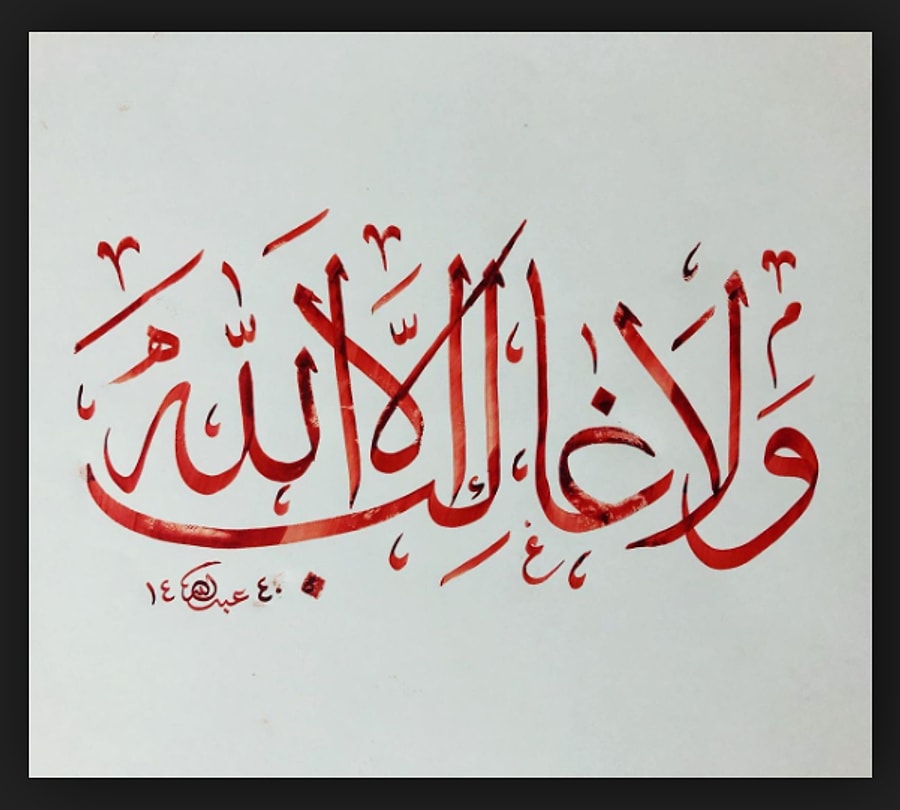 وَلَا غَالِبَ إِلَّا اللّٰهُ
عبدالله ١٤٤٠